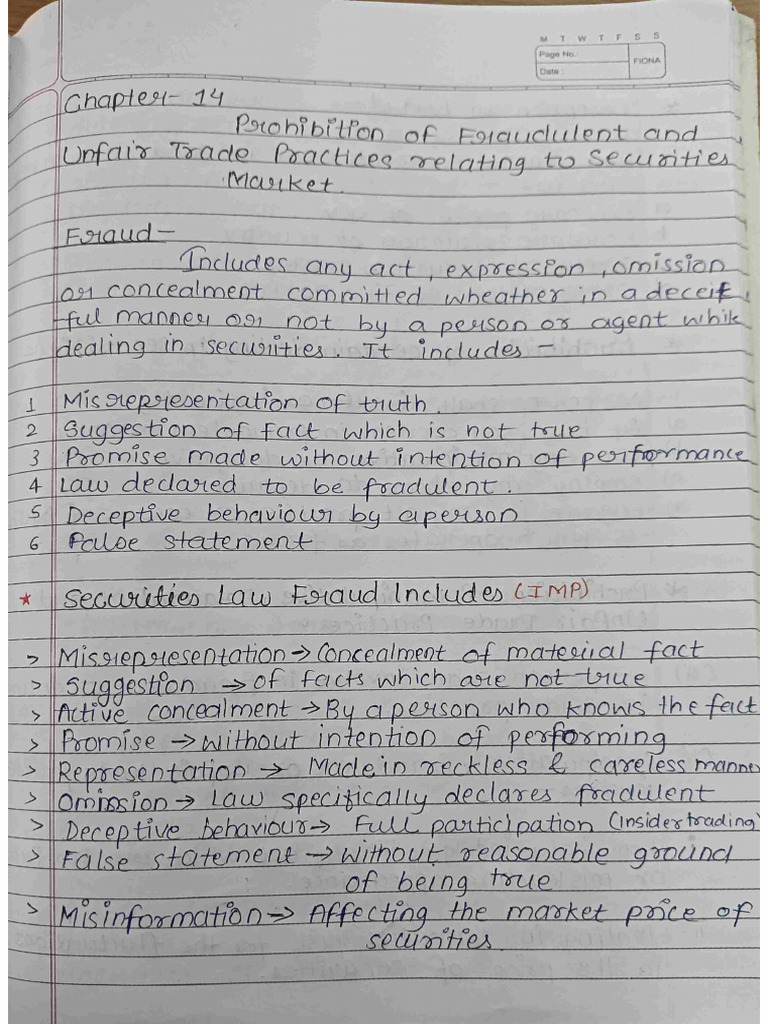 M T W T F S S
Page No.:
Date:
FIONA
Chapter- 14
Prohibition of Fraudulent and
Unfair Trade Practices relating to Securities
Market.
Fraud-
Includes any act, expression, omission
or concealment committed wheather in a deceit
ful manner or not by a person or agent while
dealing in securities. It includes -
1 Misrepresentation of truth.
2 Suggestion of fact which is not true
3 Promise made without intention of performance
4 Law declared to be fradulent.
5 Deceptive behaviour by a person
6 False statement
* Securities Law Fraud Includes (IMP)
> Misrepresentation → Concealment of material fact
> Suggestion → of facts which are not true
> Active concealment → By a person who knows the fact
> Promise → without intention of performing
> Representation → Made in reckless & careless manner
> Omission → Law specifically declares fradulent
> Deceptive behaviour → Full participation (Insider trading)
> False statement → without reasonable ground
of being true
> Misinformation → Affecting the market price of
securities.